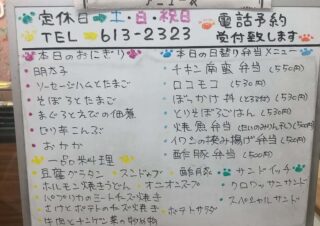 メニュー
定休日→土・日・祝日
TEL→613-2323
電話予約
受付致します
本日のおにぎり
明太子
ソーセージハムとたまご
そぼろとたまご
まぐろとえびの佃煮
日の出こんぶ
おかか
本日の日替り弁当メニュー
チキン南蛮弁当(550円)
ロコモコ(530円)
ぼっかけ丼(530円)
とりそぼろごはん(530円)
焼魚弁当(500円)
イワシの挟み揚げ弁当(500円)
酢豚弁当(550円)
一品料理
豆腐グラタン スンドゥブ 酢豚
ホルモン焼きうどん オニオンスープ
パプリカのミートチーズ焼き
さけとポテトのチーズ焼き ポテトサラダ
牛肉とチンゲン菜の炒め物
サンドイッチ
クロワッサンサンド
スペシャルサンド